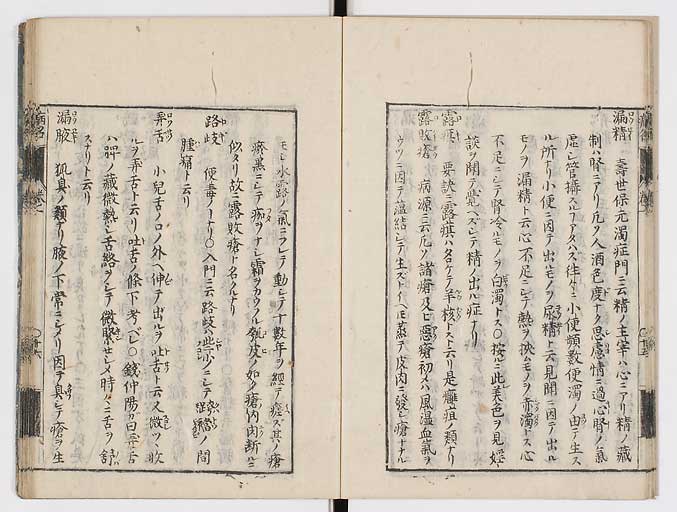 漏精 壽世保元濁症門ニ云精ノ主宰ハ心ニアリ精ノ藏
制ハ腎ニアリ凡ソ人酒色度ナク思慮情ニ過心腎ノ氣
虛シ管攝スルコアタハズ往々ニ小便頻數便濁ノ由テ生ス
ル所リ小便ニ因テ出モノヲ尿精ト云見聞ニ因テ出ル
モノヲ漏精ト云心不足ニシテ熱ヲ挾ムモノヲ赤濁トス心
不足ニシテ腎冷ルモノヲ白濁トス○按ルニ此美色ヲ見婬
談ヲ聞テ覺ヘズシテ精ノ出ル症ナリ
露疽 要訣ニ露疽ハ名ケテ羊核トスト云リ是癰疽ノ類ナリ
露敗瘡 病源ニ云凡ソ諸瘡及ヒ惡瘡初スハ風温血氣ヲ
ウツニ因テ蘊結シテ生ス
モシ水露ノ氣ニフレテ動シテ十數年ヲ經テ瘥ズ其ノ瘡
瘀黑ニシテ痂ヲナシ霜ヲカウムル瓠皮ノ如ク瘡內肉断ルニ
似タリ故ニ露敗瘡ト名クルナリ
路岐 便毒ノーナリ○入門ニ云路岐ハ些少ニシテ ノ間
腫ルト云リ
弄舌 小兒舌ノ口ノ外ヘ伸テ出ルヲ吐舌ト云又微ツヽ收
ルヲ弄舌ト云リ吐舌ノ條下考ベシ○錢仲陽カ曰弄舌
ハ脾ノ藏微熱シ舌絡ヲシテ微緊セシメ時々ニ舌ヲ舒
スナリト云リ
漏腋 狐臭ノ類ナリ腋ノ下常ニシメリ因テ臭シテ瘡ヲ生